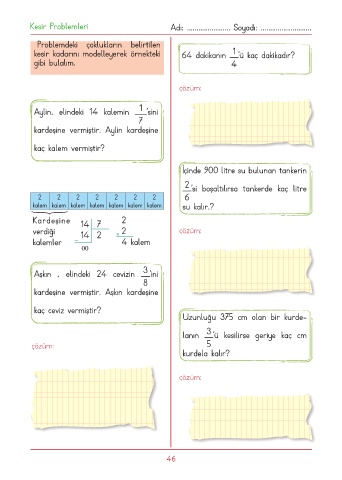 Kesir Problemleri
Adı: ...................... Soyadı: .........................
Problemdeki çoklukların belirtilen
kesir kadarını modelleyerek örnekteki
gibi bulalım.
Aylin, elindeki 14 kalemin 1/7'sini
kardeşine vermiştir. Aylin kardeşine
kaç kalem vermiştir?
2 2 2 2 2 2 2
kalem kalem kalem kalem kalem kalem kalem
Kardeşine 14 7 2
verdiği 14 2 2
kalemler = 4 kalem
00
Aşkın , elindeki 24 cevizin 3/8'ini
kardeşine vermiştir. Aşkın kardeşine
kaç ceviz vermiştir?
çözüm:
64 dakikanın 1/4'ü kaç dakikadır?
çözüm:
İçinde 900 litre su bulunan tankerin
2/6'si boşaltılırsa tankerde kaç litre
su kalır.?
çözüm:
Uzunluğu 375 cm olan bir kurde-
lanın 3/5'ü kesilirse geriye kaç cm
kurdela kalır?
çözüm:
46